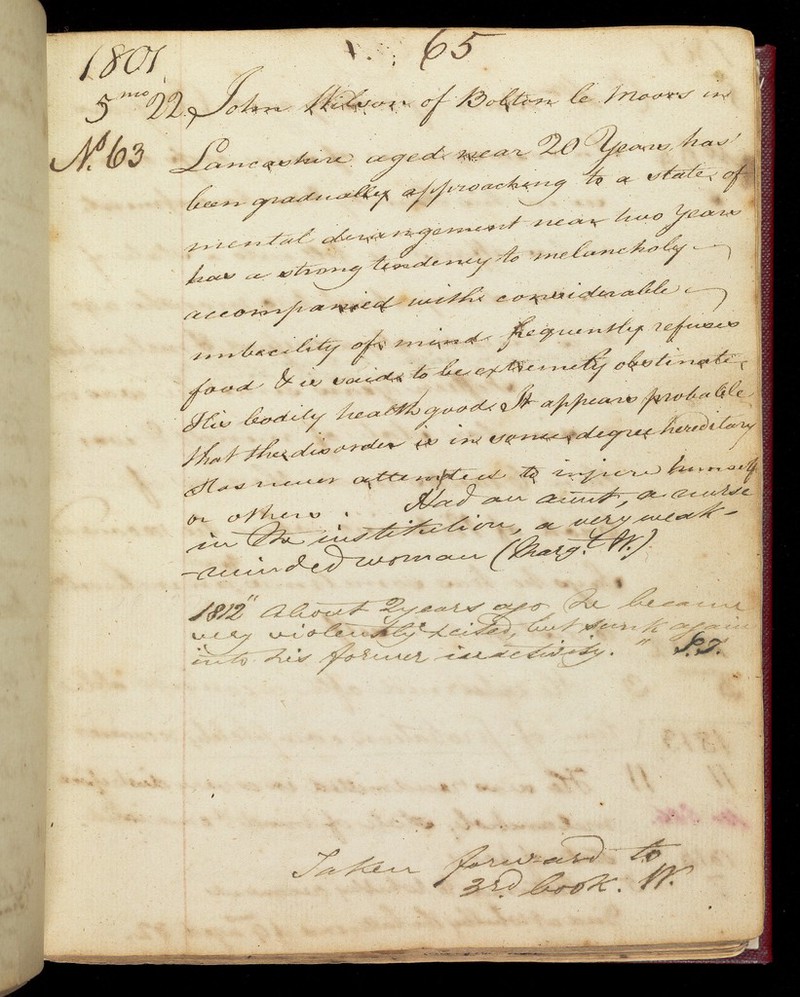 65
1801
5 mo 22 John Wilson of Bolton le Moors in
No. 63 Lancashire aged near 20 Years, has
been gradually approaching to a state of
mental derangement near two Years
has a strong tendency to melancholy
accompanied with considerable
imbecility of mind frequently refuses
food & is said to be extremely obstinate,
His bodily health good. It appears probable
that the disorder is in some degree hereditary
Has never attempted to injure himself
or others. Had an aunt, a nurse
in the institution, a very weak-
-minded woman (Marg.t W.)
1812 "About 2 years ago, he became
very violently excited, but sunk again
into his former inactivity." S.T.
Taken forward to
3rd book. W.